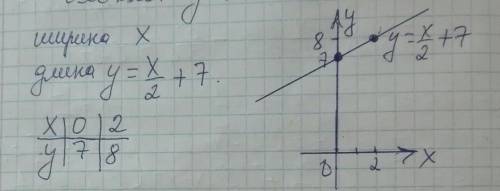 ширина x
длина y = x/2 + 7.
x 0 2
y 7 8
y
8
7
y = x/2 + 7
0 2 x